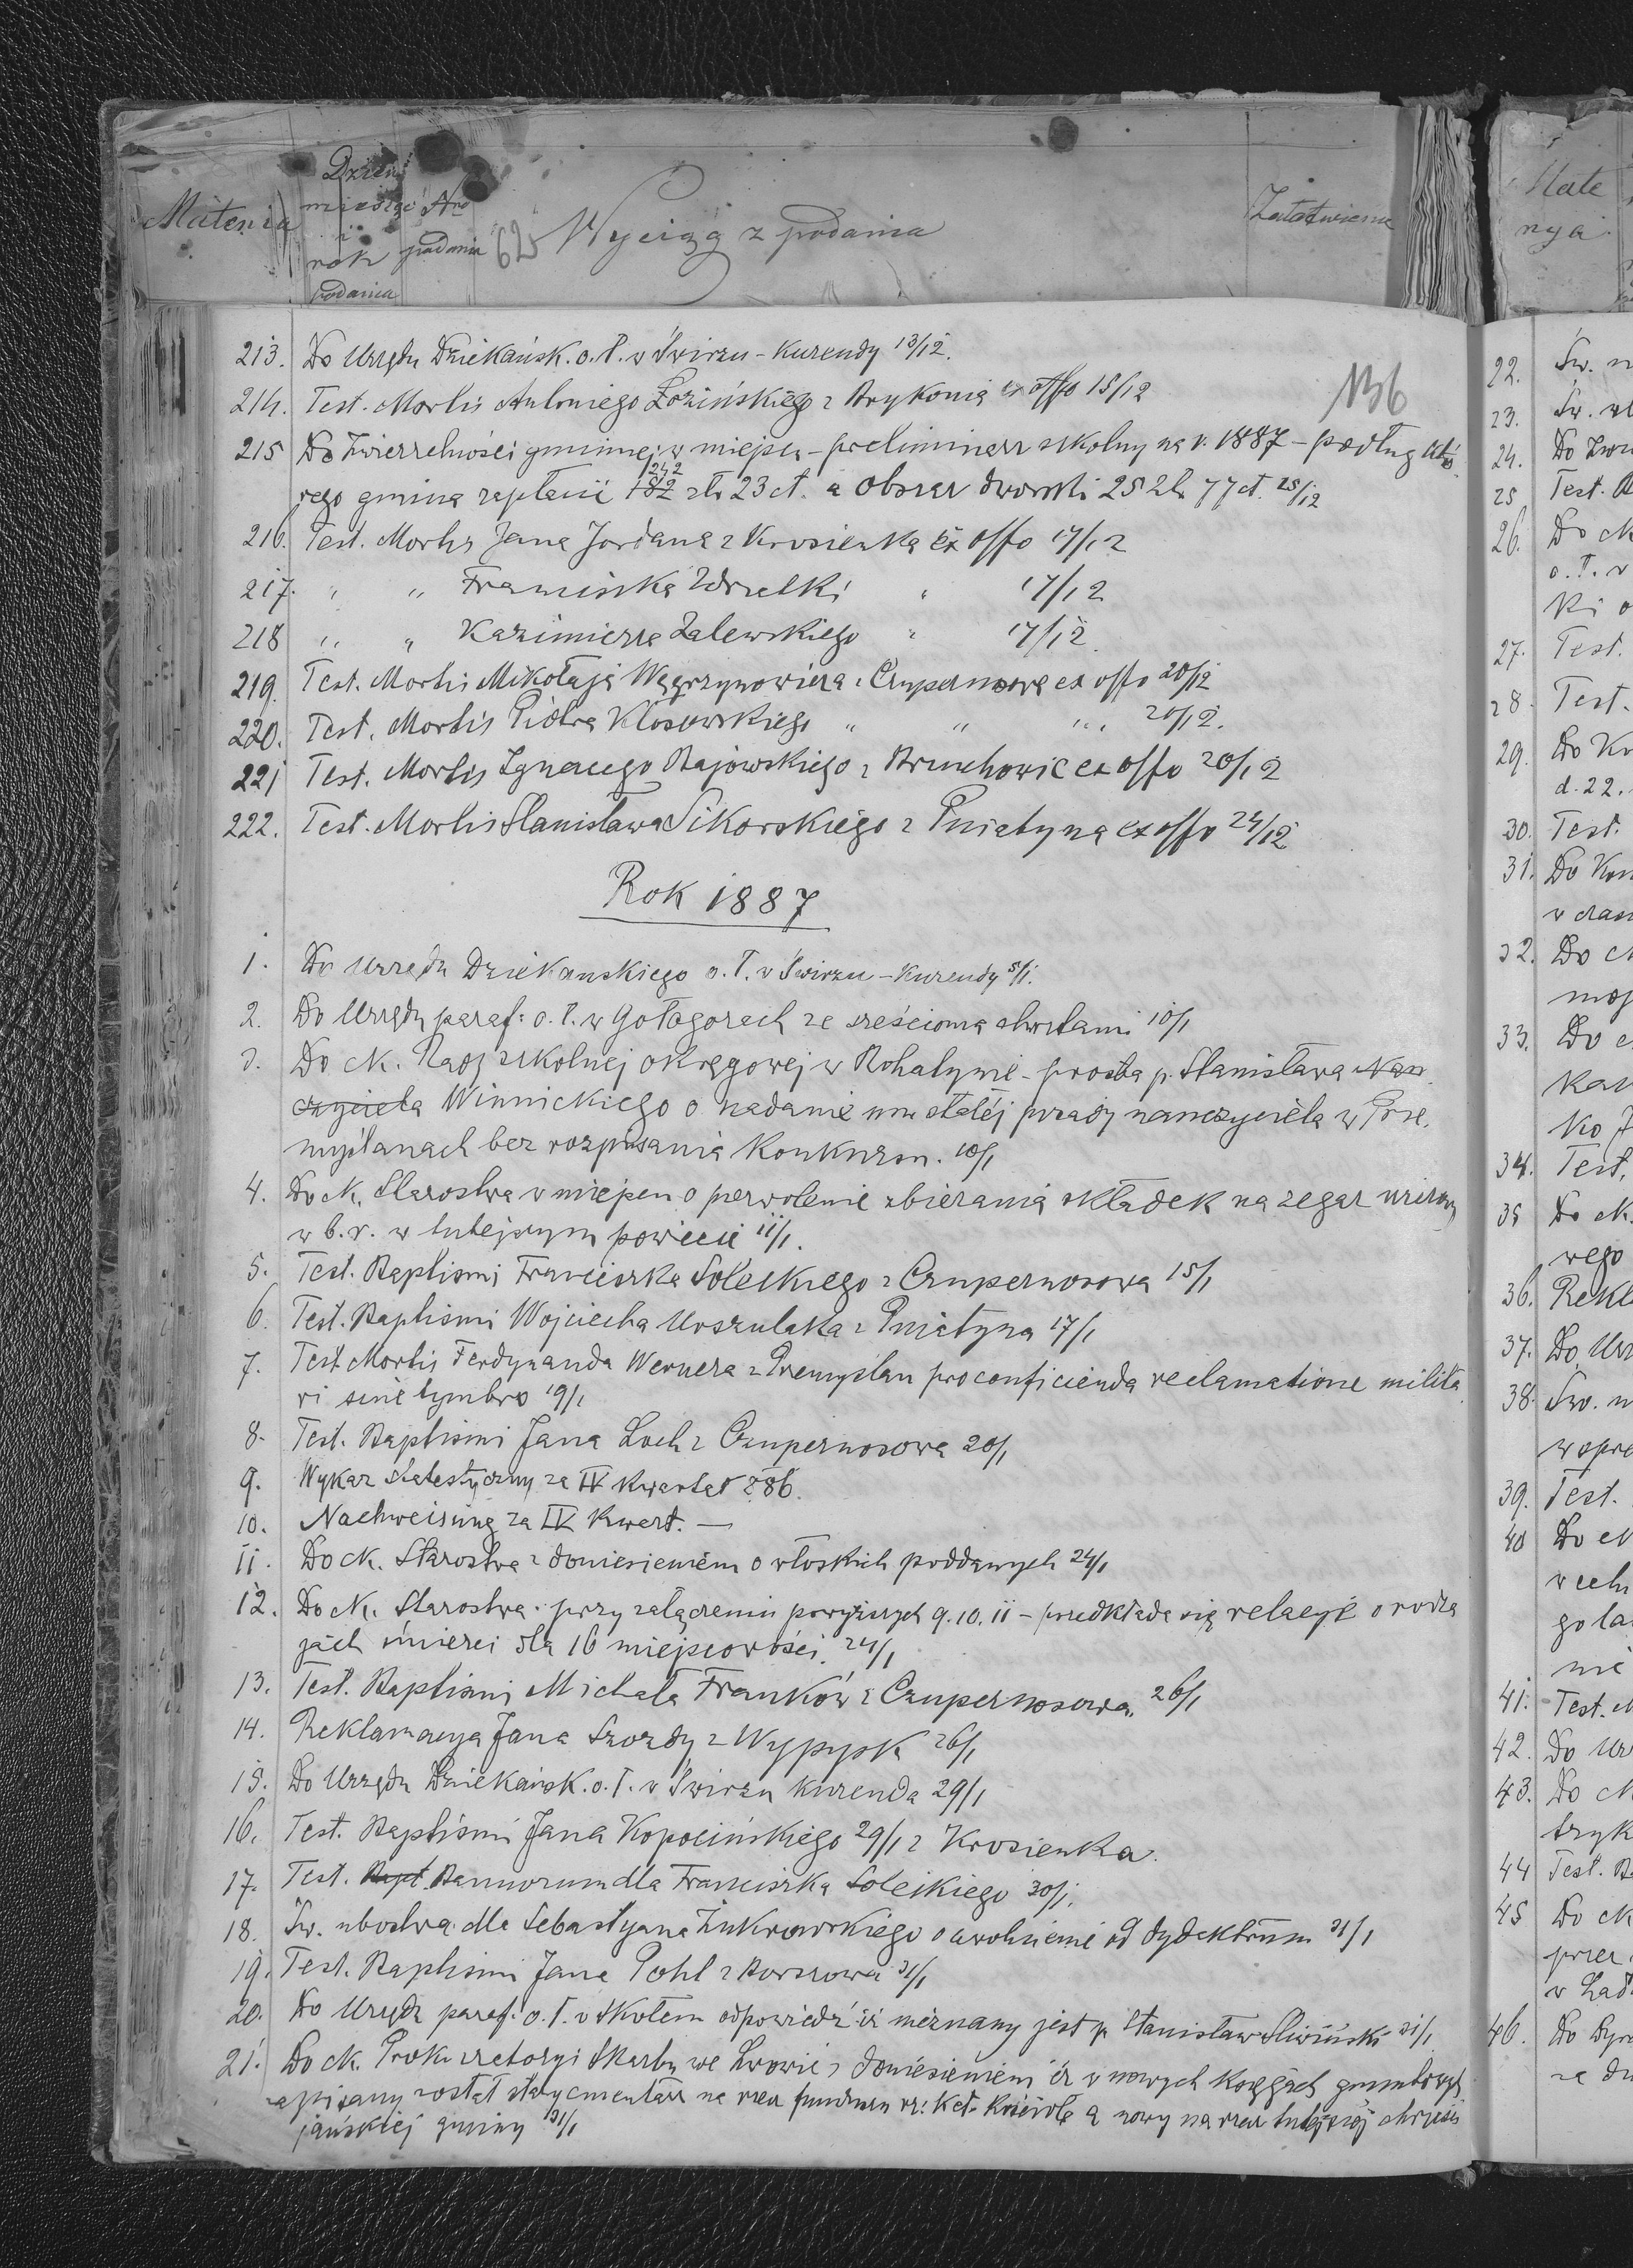 Materia
Dzień
miesiąc
i
rok
podania
Nro
podania
62
Wyciąg z podania
Załatwienie
136
213. Do Urzędu Dziekańsk. o. ł. w Świrzu - Kurendy 13/12.
214. Test. Mortis Antoniego Łozińskiego z Brykonia ex offo 15/12
215 Do Zwierzchności gminnej w miejscu - preliminarz szkolny na r. 1887 - podług któ
rego gmina zapłacić 182 242 zł. 23 ct. a obszar dworski 25 zł. 77 ct. 15/12
216. Test. Mortis Jana Jordana z Krosienka ex offo 17/12
217. " " Franciszka " 17/12
218 " " Kazimierza Zalewskiego " 17/12
219. Test. Mortis Mikołaja Węgrzynowicza z Czupernosowa ex offo 20/12
220. Test. Mortis Piotra Kłosowskiego " " " 20/12.
221 Test. Mortis Ignacego Rajowskiego z Bruchowic ex offo 20/12
222. Test. Mortis Stanisława Sikorskiego z Pniatyna ex offo 24/12
Rok 1887
1. Do Urzędu Dziekanskiego o. ł. w Świrzu - Kurendy 5/1.
2. Do Urzędu paraf: o. ł. w Gołogorach ze sześcioma chrztami 10/1
3. Do ck. Rady szkolnej okręgowej w Rohatynie - prośba p. Stanisława Nau
czyciela Winnickiego o nadanie mu stałéj posady nauczyciela w Prze
myślanach bez rozpisania Konkursu. 10/1
4. Do ck. Starostwa w miejscu o pozwolenie zbierania składek na zegar
w b. r. w tutejszym powiecie 11/1.
5. Test. Baptismi Franciszka Soleckiego z Czupernosowa 15/1
6. Test. Baptismi Wojciecha Urszulaka z Pniatyna 17/1
7. Test Mortis Ferdynanda Wernera z Przemyślan pro conficienda reclamatione milita
ri sine tymbro 19/1
8. Test. Baptismi Jana Loch z Czupernosowa 20/1
9. Wykaz statestyczny za IV kwartał 886.
10. Nachweisung za IV Kwart. —
11. Do ck. Starostwa z doniesieniem o włoskich poddanych 24/1
12. Do ck. Starostwa przy załączeniu powyższych 9. 10. 11 - przedkłada się relacye o rodza
jach śmierci dla 16 miejscowości. 24/1
13. Test. Baptismi Michała Franków z Czupernosowa. 26/1
14. Reklamacya Jana Szozdy z Wypysk 26/1
15. Do Urzędu Dziekańsk. o. ł. w Świrzu kurenda 29/1
16. Test. Baptismi Jana Kopocińskiego 29/1 z Krosienka.
17. Test. Bapt. Bannorum dla Franciszka Soleckiego 30/1.
18. Św. ubostwa dla Sebastyana Żukrowskiego o uwolnienie od dydaktrum 31/1
19. Test. Baptismi Jana Pohl z Borszowa 31/1
20. Do Urzędu paraf: o. ł. w Skolem odpowiedź iż nieznany jest p. Stanisław Śliwiński 31/1
21. Do ck. Prokuratoryi Skarbu we Lwowie z doniesieniem iż w nowych księgach gruntowych
zapisany został stary cmentarz na rzecz funduszu rz: kat. Kościoła a nowy na rzecz tutejszéj chrześci
jańskiéj gminy 31/1
Mate
rya
22. Św.
23. Św.
24. Do
25 Test.
26. Do ck
o. ł. w
27. Test.
28. Test.
29. Do
d. 22.
30. Test.
31. Do
32. Do
33. Do
34. Test.
35 Do ck.
wego
36.
37. Do
38.
39. Test.
40 Do ck
41. Test.
42. Do
43. Do
44 Test.
45 Do ck
46. Do